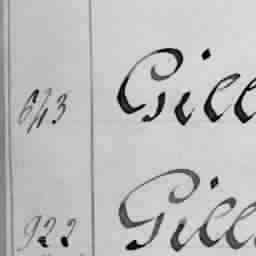 643 Gill
922 Gill